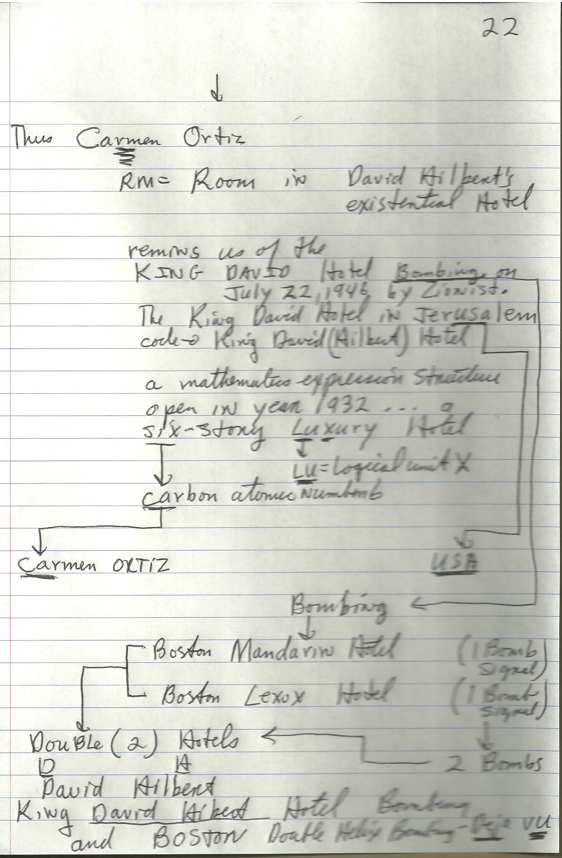 22
Thus Carmen Ortiz
RM= Room in David Hilbert's
existential Hotel
reminds us of the
KING DAVID Hotel Bombing on
July 22, 1946 by Zionist.
The King David Hotel in Jerusalem
code→ King David (Hilbert) Hotel
a mathematics expression structure
open in year 1932 ... a
six-story Luxury Hotel
LU=Logical unit X
carbon atomic number 6
Carmen ORTIZ
USA
Bombing
Boston Mandarin Hotel (1 Bomb
Signal)
Boston Lexox Hotel (1 Bomb
Signal)
Double (2) Hotels
2 Bombs
D H
David Hilbert
King David Hilbert Hotel Bombing
and BOSTON Double Helix Bombing - Deja VU